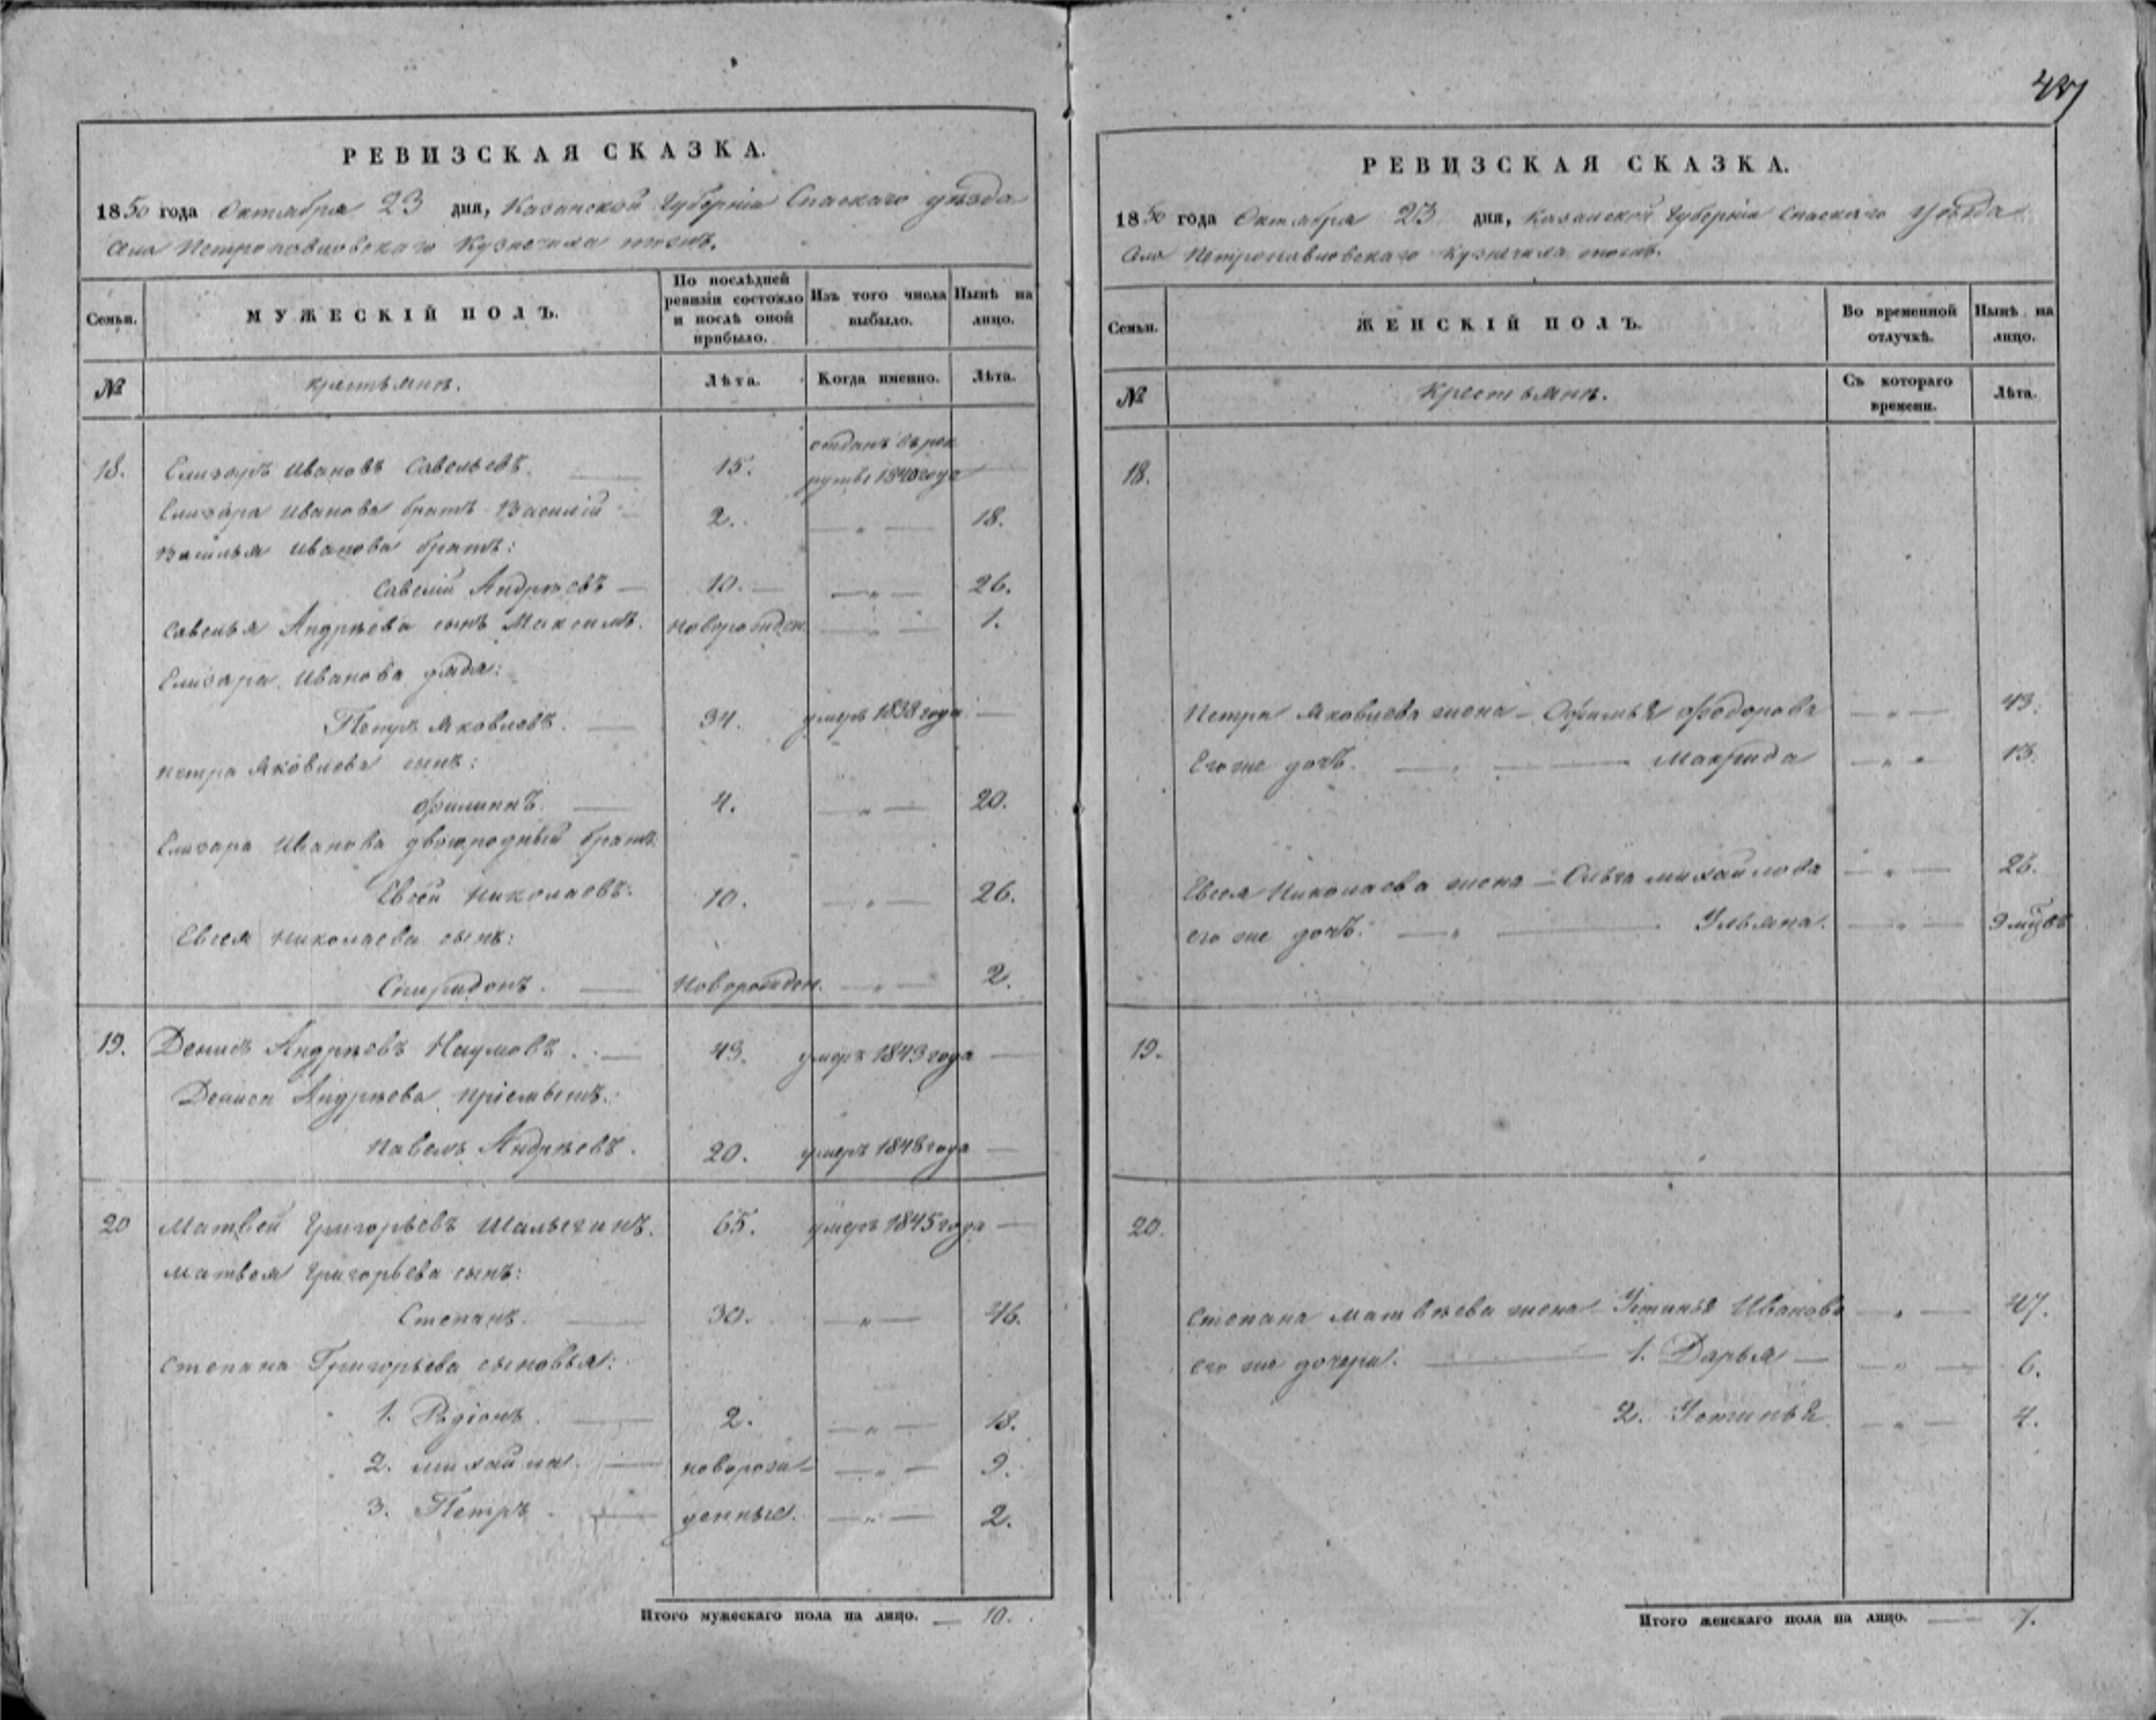 427
РЕВИЗСКАЯ СКАЗКА.
1850 года Октября 23 дня, Казанской Губерніи Спаскаго уѣзда
села Петропавловскаго Кузнечиха тожъ.
Семьи. МУЖЕСКІЙ ПОЛЪ. По послѣдней ревизіи состояло и послѣ оной прибыло. Изъ того числа выбыло. Нынѣ на лицо.
№ крестьянѣ. Лѣта. Когда именно. Лѣта.
18. Елизаръ Ивановъ Савельевъ. 15. отданъ въ рекруты 1840 года —
Елизара Иванова братъ Василій 2. — „ — 18.
Василья Иванова братъ:
Савелій Андрѣевъ — 10. — „ — 26.
Савелья Андрѣева сынъ Максимъ. новорожден. — „ — 1.
Елизара Иванова дядя:
Петръ Яковлевъ. — 34. умеръ 1838 года —
Петра Яковлева сынъ:
Филиппъ. — 4. — „ — 20.
Елизара Иванова двоюродный братъ:
Евсей Николаевъ. 10. — „ — 26.
Евсея Николаева сынъ:
Спиридонъ. — Новорожден. — „ — 2.
19. Денисъ Андрѣевъ Наумовъ. — 43. умеръ 1843 года —
Дениса Андрѣева пріемышъ:
Павелъ Андрѣевъ. 20. умеръ 1848 года —
20 Матвей Григорьевъ Шалыгинъ. 65. умеръ 1845 года —
Матвея Григорьева сынъ:
Степанъ. — 30. — „ — 46.
Степана Григорьева сыновья:
1. Родіонъ. — 2. — „ — 18.
2. Михайла. — новорож- — „ — 9.
3. Петръ. — денные. — „ — 2.
Итого мужескаго пола на лицо. — 10.
РЕВИЗСКАЯ СКАЗКА.
1850 года Октября 23 дня, Казанской Губерніи Спаскаго уѣзда
села Петропавловскаго Кузнечиха тожъ.
Семьи. ЖЕНСКІЙ ПОЛЪ. Во временной отлучкѣ. Нынѣ на лицо.
№ Крестьянѣ. Съ котораго времени. Лѣта.
18.
Петра Яковлева жена — Офимья Федорова — „ — 43.
Его же дочь. — „ — Макрида — „ — 13.
Евсея Николаева жена — Ольга Михайлова — „ — 26.
его же дочь: — „ — Ульяна. — „ — 9 мцовъ
19.
20.
Степана Матвѣева жена Устинья Иванова — „ — 47.
его же дочери: — 1. Дарья — — „ — 6.
2. Устинья — „ — 4.
Итого женскаго пола на лицо. — 7.